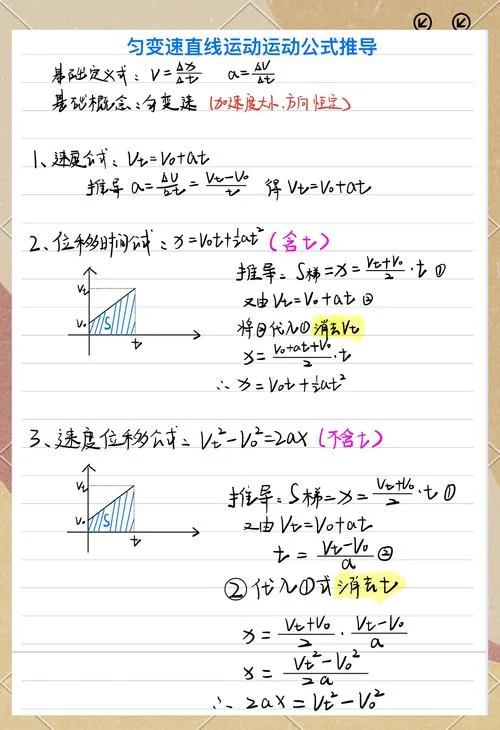 匀变速直线运动运动公式推导
基础定义式: V=Δx/Δt  a=ΔV/Δt
基础概念: 匀变速 (加速度大小、方向恒定)
1、速度公式: Vt=V0+at
推导 a=ΔV/Δt=(Vt-V0)/t 得 Vt=V0+at
2、位移时间公式: x=V0t+½at² (含t)
Vt
V0
S
t
推导: S梯=x=(Vt+V0)/2·t ①
又由 Vt=V0+at ②
将②代入①消去Vt
x=(V0+at+V0)/2·t
∴ x=V0t+½at²
3、速度位移公式: Vt²-V0²=2ax (不含t)
Vt
V0
S
t
推导: S梯=x=(Vt+V0)/2·t ①
又由 Vt=V0+at
t=(Vt-V0)/a ②
②代入①式消去t
x=(Vt+V0)/2·(Vt-V0)/a
x=(Vt²-V0²)/2a
∴ 2ax=Vt²-V0²